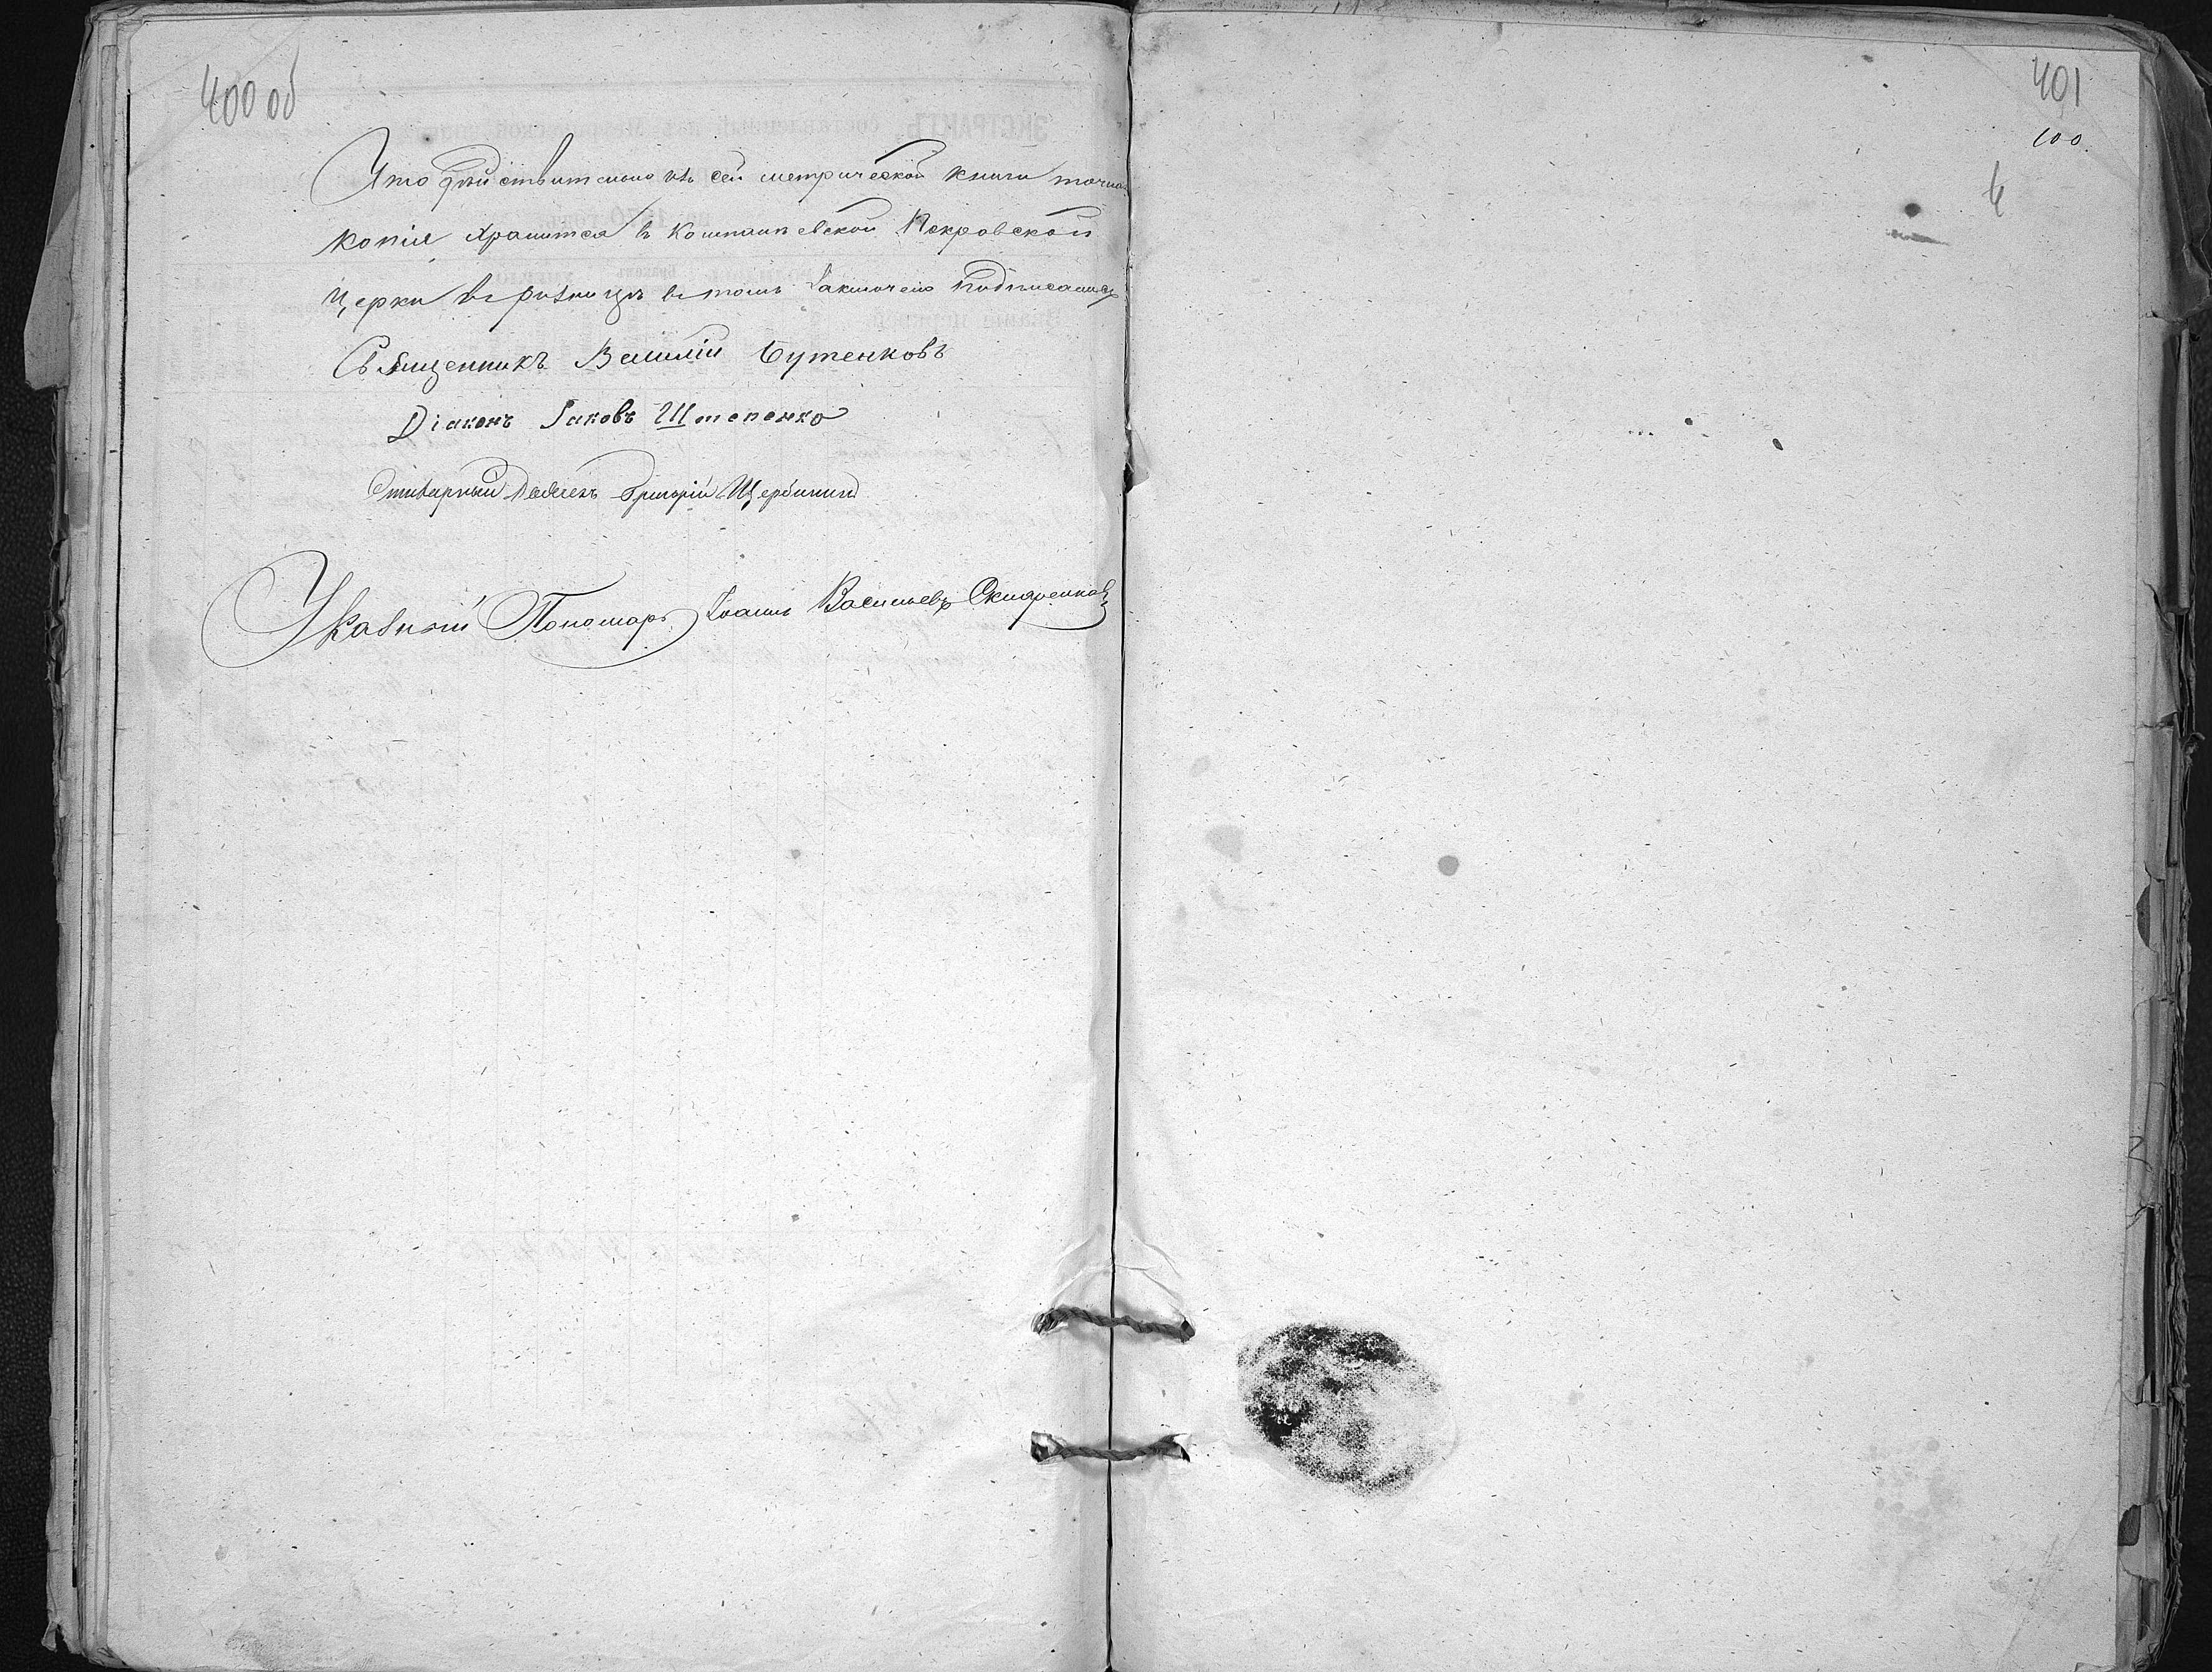 400 об
Что действительно въ сей метрической книги точная
копія хранится в Компаніевской Покровской
Церки в ризницѣ в томъ заключено Подписались
Священникъ Василій Бутенковъ
Діаконъ Іаковъ Штепенко
Григорій Щербинин
Указный Пономарь Іоаннъ Васильевъ Скляренковъ
401
100